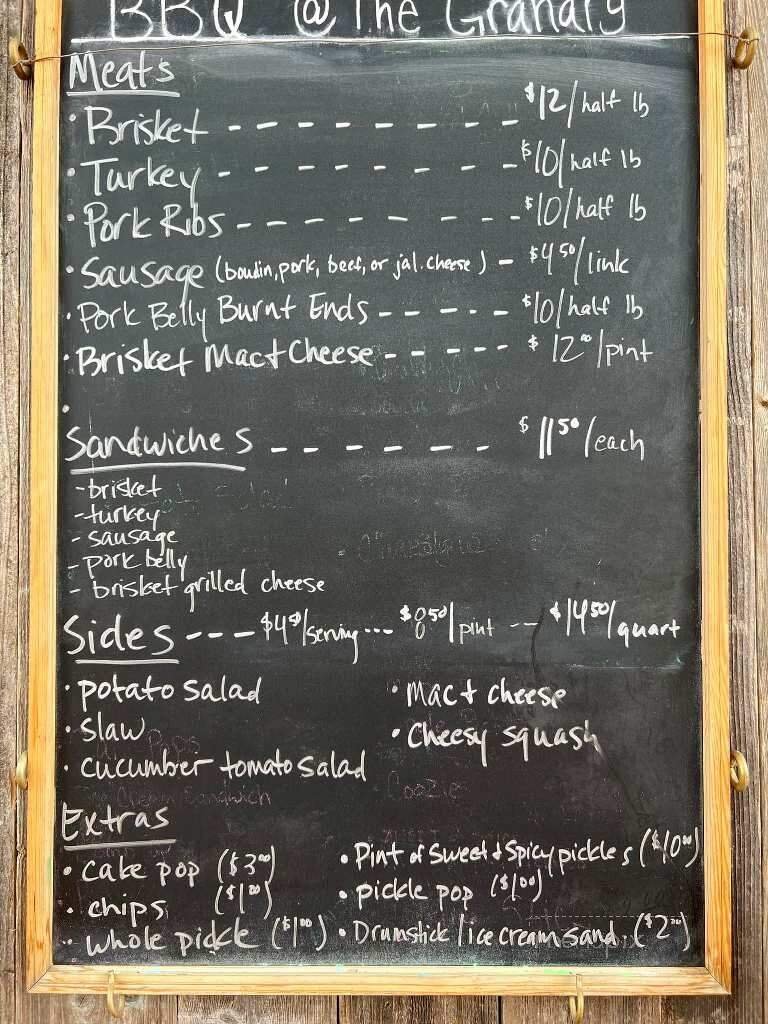 BBQ @ The Granary
Meats
• Brisket - - - - - - - - $12/half lb
• Turkey - - - - - - - - $10/half lb
• Pork Ribs - - - - - - - - $10/half lb
• Sausage (boudin, pork, beef, or jal. cheese) - $4.50/link
• Pork Belly Burnt Ends - - - - - $10/half lb
• Brisket Mac + Cheese - - - - - $12.00/pint
•
Sandwiches - - - - - - $11.50/each
- brisket
- turkey
- sausage
- pork belly
- brisket grilled cheese
Sides - - - $4.50/serving --- $8.50/pint -- $14.50/quart
• potato salad
• slaw
• cucumber tomato salad
• Mac + cheese
• Cheesy squash
Extras
• cake pop ($3.00)
• chips ($1.00)
• whole pickle ($1.00)
• Pint of Sweet + Spicy pickles ($10.00)
• pickle pop ($1.00)
• Drumstick/ice cream sand. ($2.00)